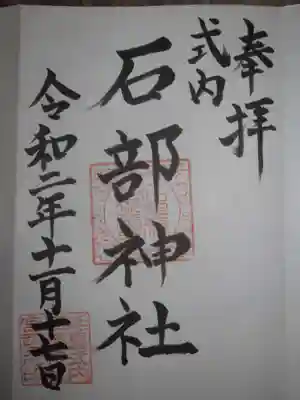 奉拝
式内
石部神社
令和二年十一月十七日